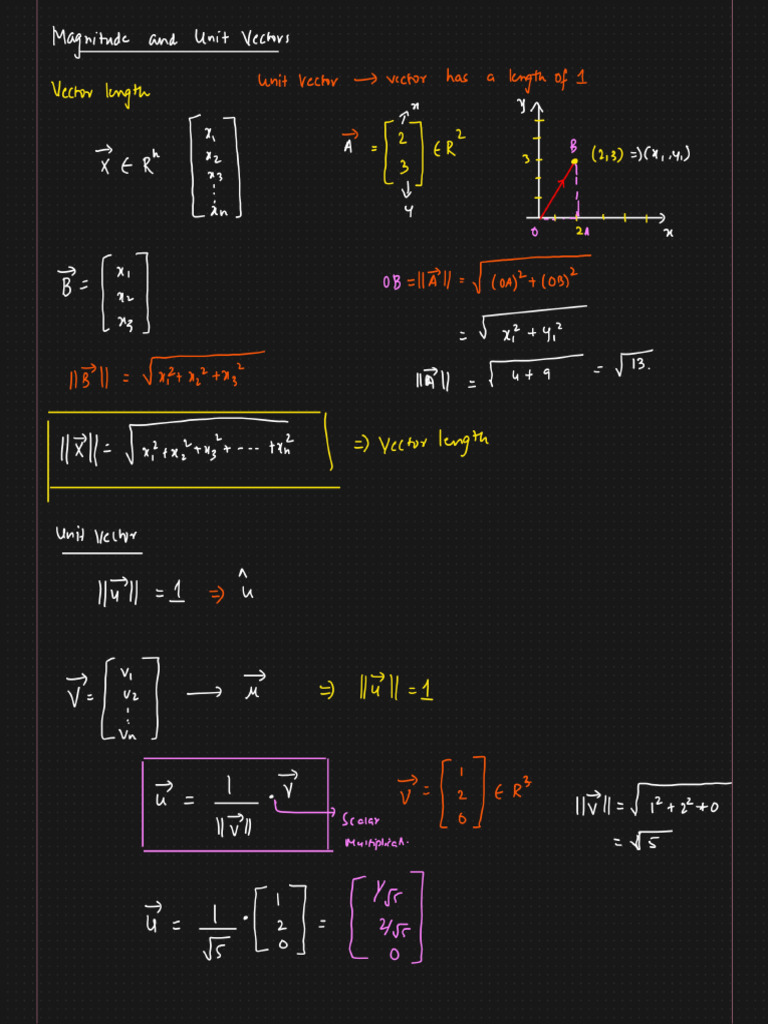 Magnitude and Unit Vectors
Unit Vector → vector has a length of 1
Vector length
X⃗ ∈ Rⁿ [x₁ x₂ x₃ ⋮ xₙ]
A⃗ = [2 3] ∈ R²
x
y
y
3
B
(2,3) => (x₁, y₁)
O
2A
x
B⃗ = [x₁ x₂ x₃]
OB = ||A⃗|| = √((OA)² + (OB)²)
= √(x₁² + y₁²)
||B⃗|| = √(x₁² + x₂² + x₃²)
||A⃗|| = √(4 + 9) = √13.
||X⃗|| = √(x₁² + x₂² + x₃² + ---- + xₙ²) => Vector length
Unit Vector
||u⃗|| = 1 => û
V⃗ = [v₁ v₂ ⋮ vₙ] → u⃗ => ||u⃗|| = 1
u⃗ = 1/||v⃗|| · v⃗
Scalar
Multiplical.
V⃗ = [1 2 0] ∈ R³
||v⃗|| = √(1² + 2² + 0)
= √5
u⃗ = 1/√5 · [1 2 0] = [1/√5 2/√5 0]